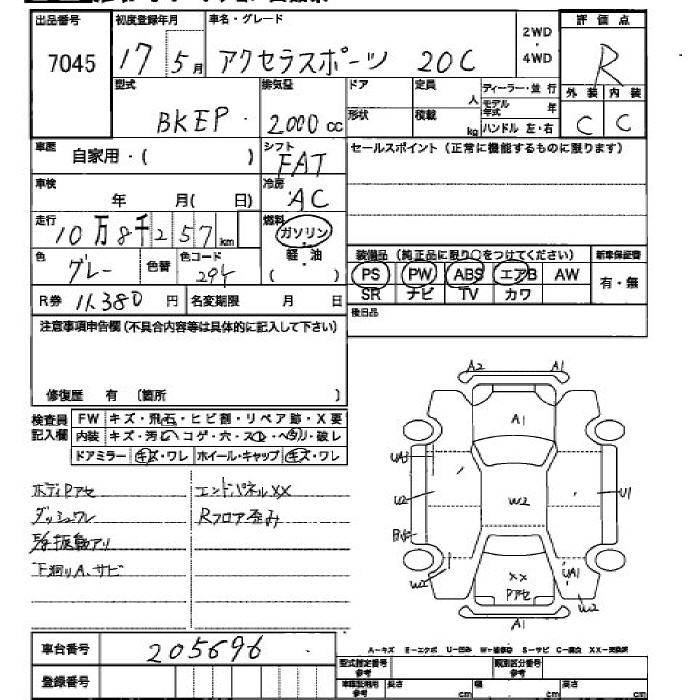 出品番号 初度登録年月 車名・グレード 2WD ・ 4WD 評価点
7045 17 5月 アクセラスポーツ 20C R
型式 排気量 ドア 定員 人 ディーラー・並行 外装 内装
BKEP 2000cc 形状 積載 kg モデル年式 年 ハンドル 左・右 C C
車歴 自家用・( ) シフト FAT セールスポイント(正常に機能するものに限ります)
車検 年 月( 日) 冷房 AC
走行 10万8千257km 燃料 ガソリン・軽・油 ( )
色 グレー 色替 色コード 装備品(純正品に限り○をつけてください) 新車保証書
PS PW ABS エアB AW 有・無
R券 11,380円 名変期限 月 日 SR ナビ TV カワ
注意事項申告欄(不具合内容等は具体的に記入して下さい) 後日品
修復歴 有 〔箇所 〕
検査員記入欄 FW キズ・飛石・ヒビ割・リペア跡・X要
内装 キズ・汚レ・コゲ・穴・スレ・ヘタリ・破レ
ドアミラー キズ・ワレ ホイール・キャップ キズ・ワレ
ボディPアセ エンドパネルXX
ダッシュワレ Rフロア歪み
下廻りA、サビ
A2 A1
A1
UA3
U2 W2 U1
XX UA1
W2 Pアセ W2
A1
車台番号 205696
A-キズ E-エクボ U-凹み W-補修跡 S-サビ C-腐食 XX-交換済
登録番号 型式指定番号 参考 類別区分番号 参考
長さ cm 幅 cm 高さ cm